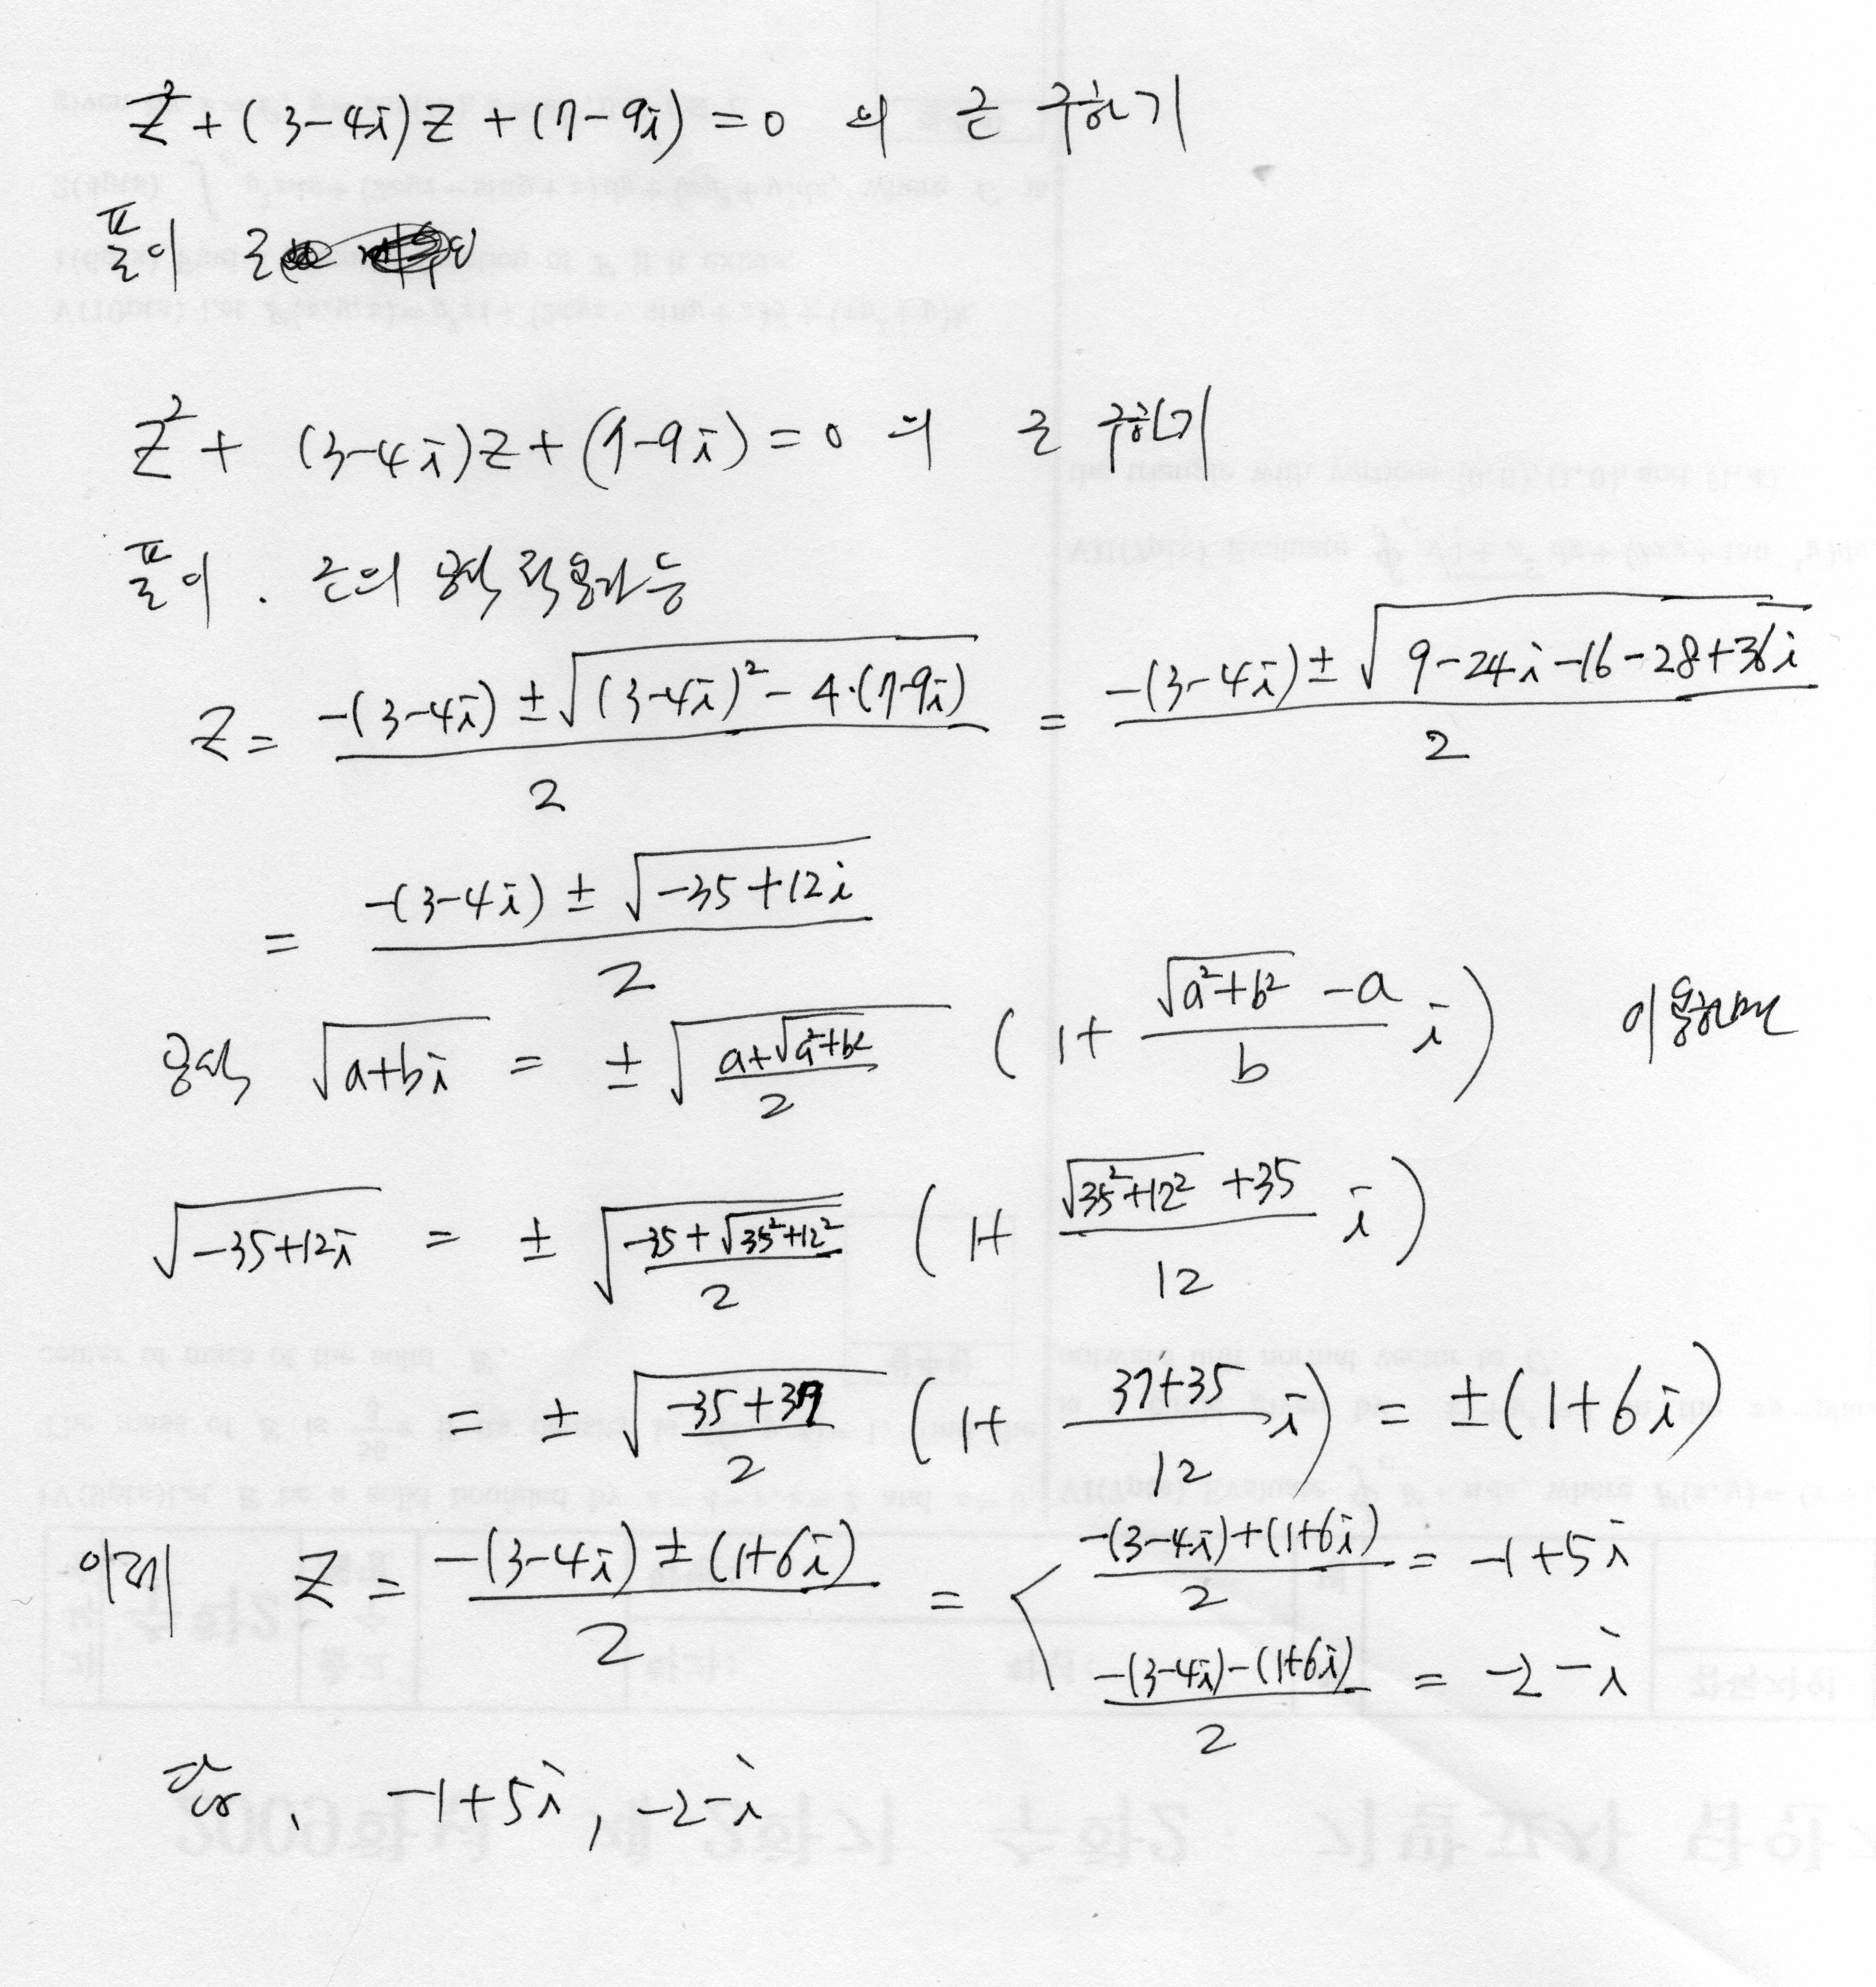 z² + (3-4i)z + (7-9i) = 0 의 근 구하기
풀이 근
z² + (3-4i)z + (7-9i) = 0 의 근 구하기
풀이. 근의 공식 적용가능
z = (-(3-4i) ± √((3-4i)² - 4·(7-9i)))/2 = (-(3-4i) ± √(9-24i-16-28+36i))/2
= (-(3-4i) ± √(-35+12i))/2
공식 √(a+bi) = ± √((a+√(a²+b²))/2) (1 + (√(a²+b²) - a)/b i) 이용하면
√(-35+12i) = ± √((-35+√(35²+12²))/2) (1+ (√(35²+12²) +35)/12 i)
= ± √((-35+37)/2) (1+ (37+35)/12 i) = ±(1+6i)
이제 z = (-(3-4i) ± (1+6i))/2 = < (-(3-4i)+(1+6i))/2 = -1+5i
(-(3-4i)-(1+6i))/2 = -2-i
-1+5i, -2-i